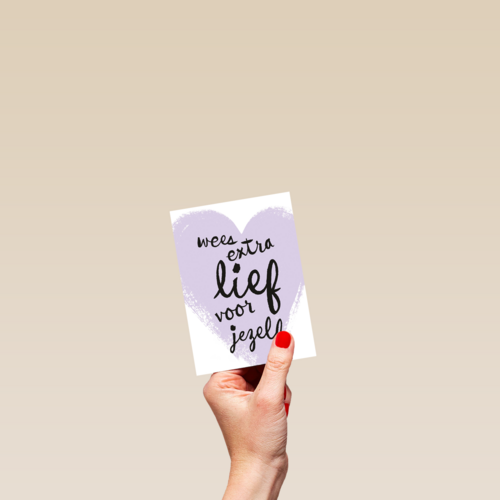 wees
extra
lief
voor
jezelf